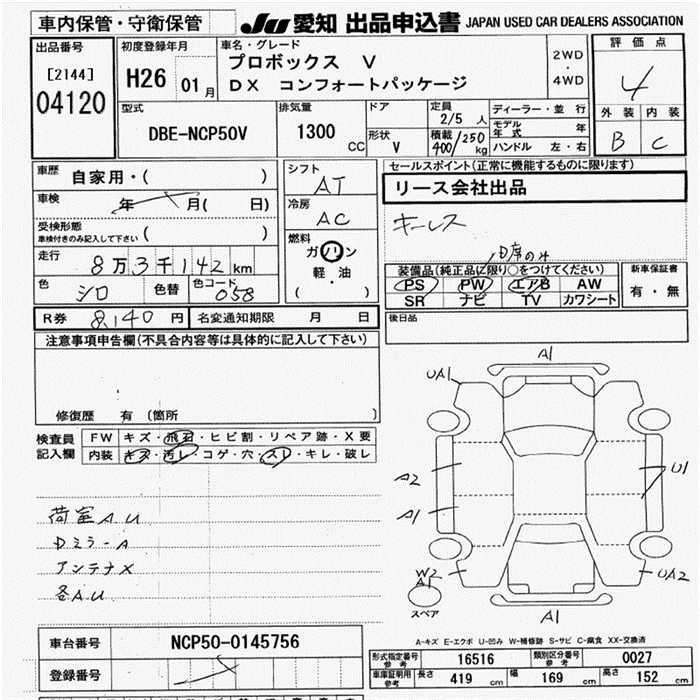 車内保管・守衛保管
JU 愛知 出品申込書 JAPAN USED CAR DEALERS ASSOCIATION
出品番号
[2144]
04120
初度登録年月
H26 01月
車名・グレード
プロボックス V
DX コンフォートパッケージ
2WD
・
4WD
評価点
4
外装 内装
B C
型式
DBE-NCP50V
排気量
1300
CC
ドア
形状
V
定員
2/5 人
積載
400/250
kg
ディーラー・並行
モデル年式 年
ハンドル 左・右
車歴 自家用・( )
車検 年 月( 日)
受検形態
車検付きのみ記入して下さい ( )
走行 8万3千142km
色 シロ 色替 色コード 058
シフト
AT
冷房
AC
燃料
ガソリン
軽・油
( )
セールスポイント(正常に機能するものに限ります)
リース会社出品
キーレス
D席のみ
装備品(純正品に限り○をつけてください)
PS PW エアB AW
SR ナビ TV カワシート
新車保証書
有・無
R券 8,140円 名変通知期限 月 日
後日品
注意事項申告欄(不具合内容等は具体的に記入して下さい)
修復歴 有 〔箇所 〕
検査員
記入欄
FW キズ・飛石・ヒビ割・リペア跡・X要
内装 キズ・汚レ・コゲ・穴・スレ・キレ・破レ
荷室A.U
DミラーA
アンテナX
各A.U
A1
UA1
A2
U1
A1
W2
A1
UA2
スペア
A1
A-キズ E-エクボ U-凹み W-補修跡 S-サビ C-腐食 XX-交換済
車台番号 NCP50-0145756
登録番号
形式指定番号
参考
16516
類別区分番号
参考
0027
車庫証明用
参考
長さ 419 cm 幅 169 cm 高さ 152 cm